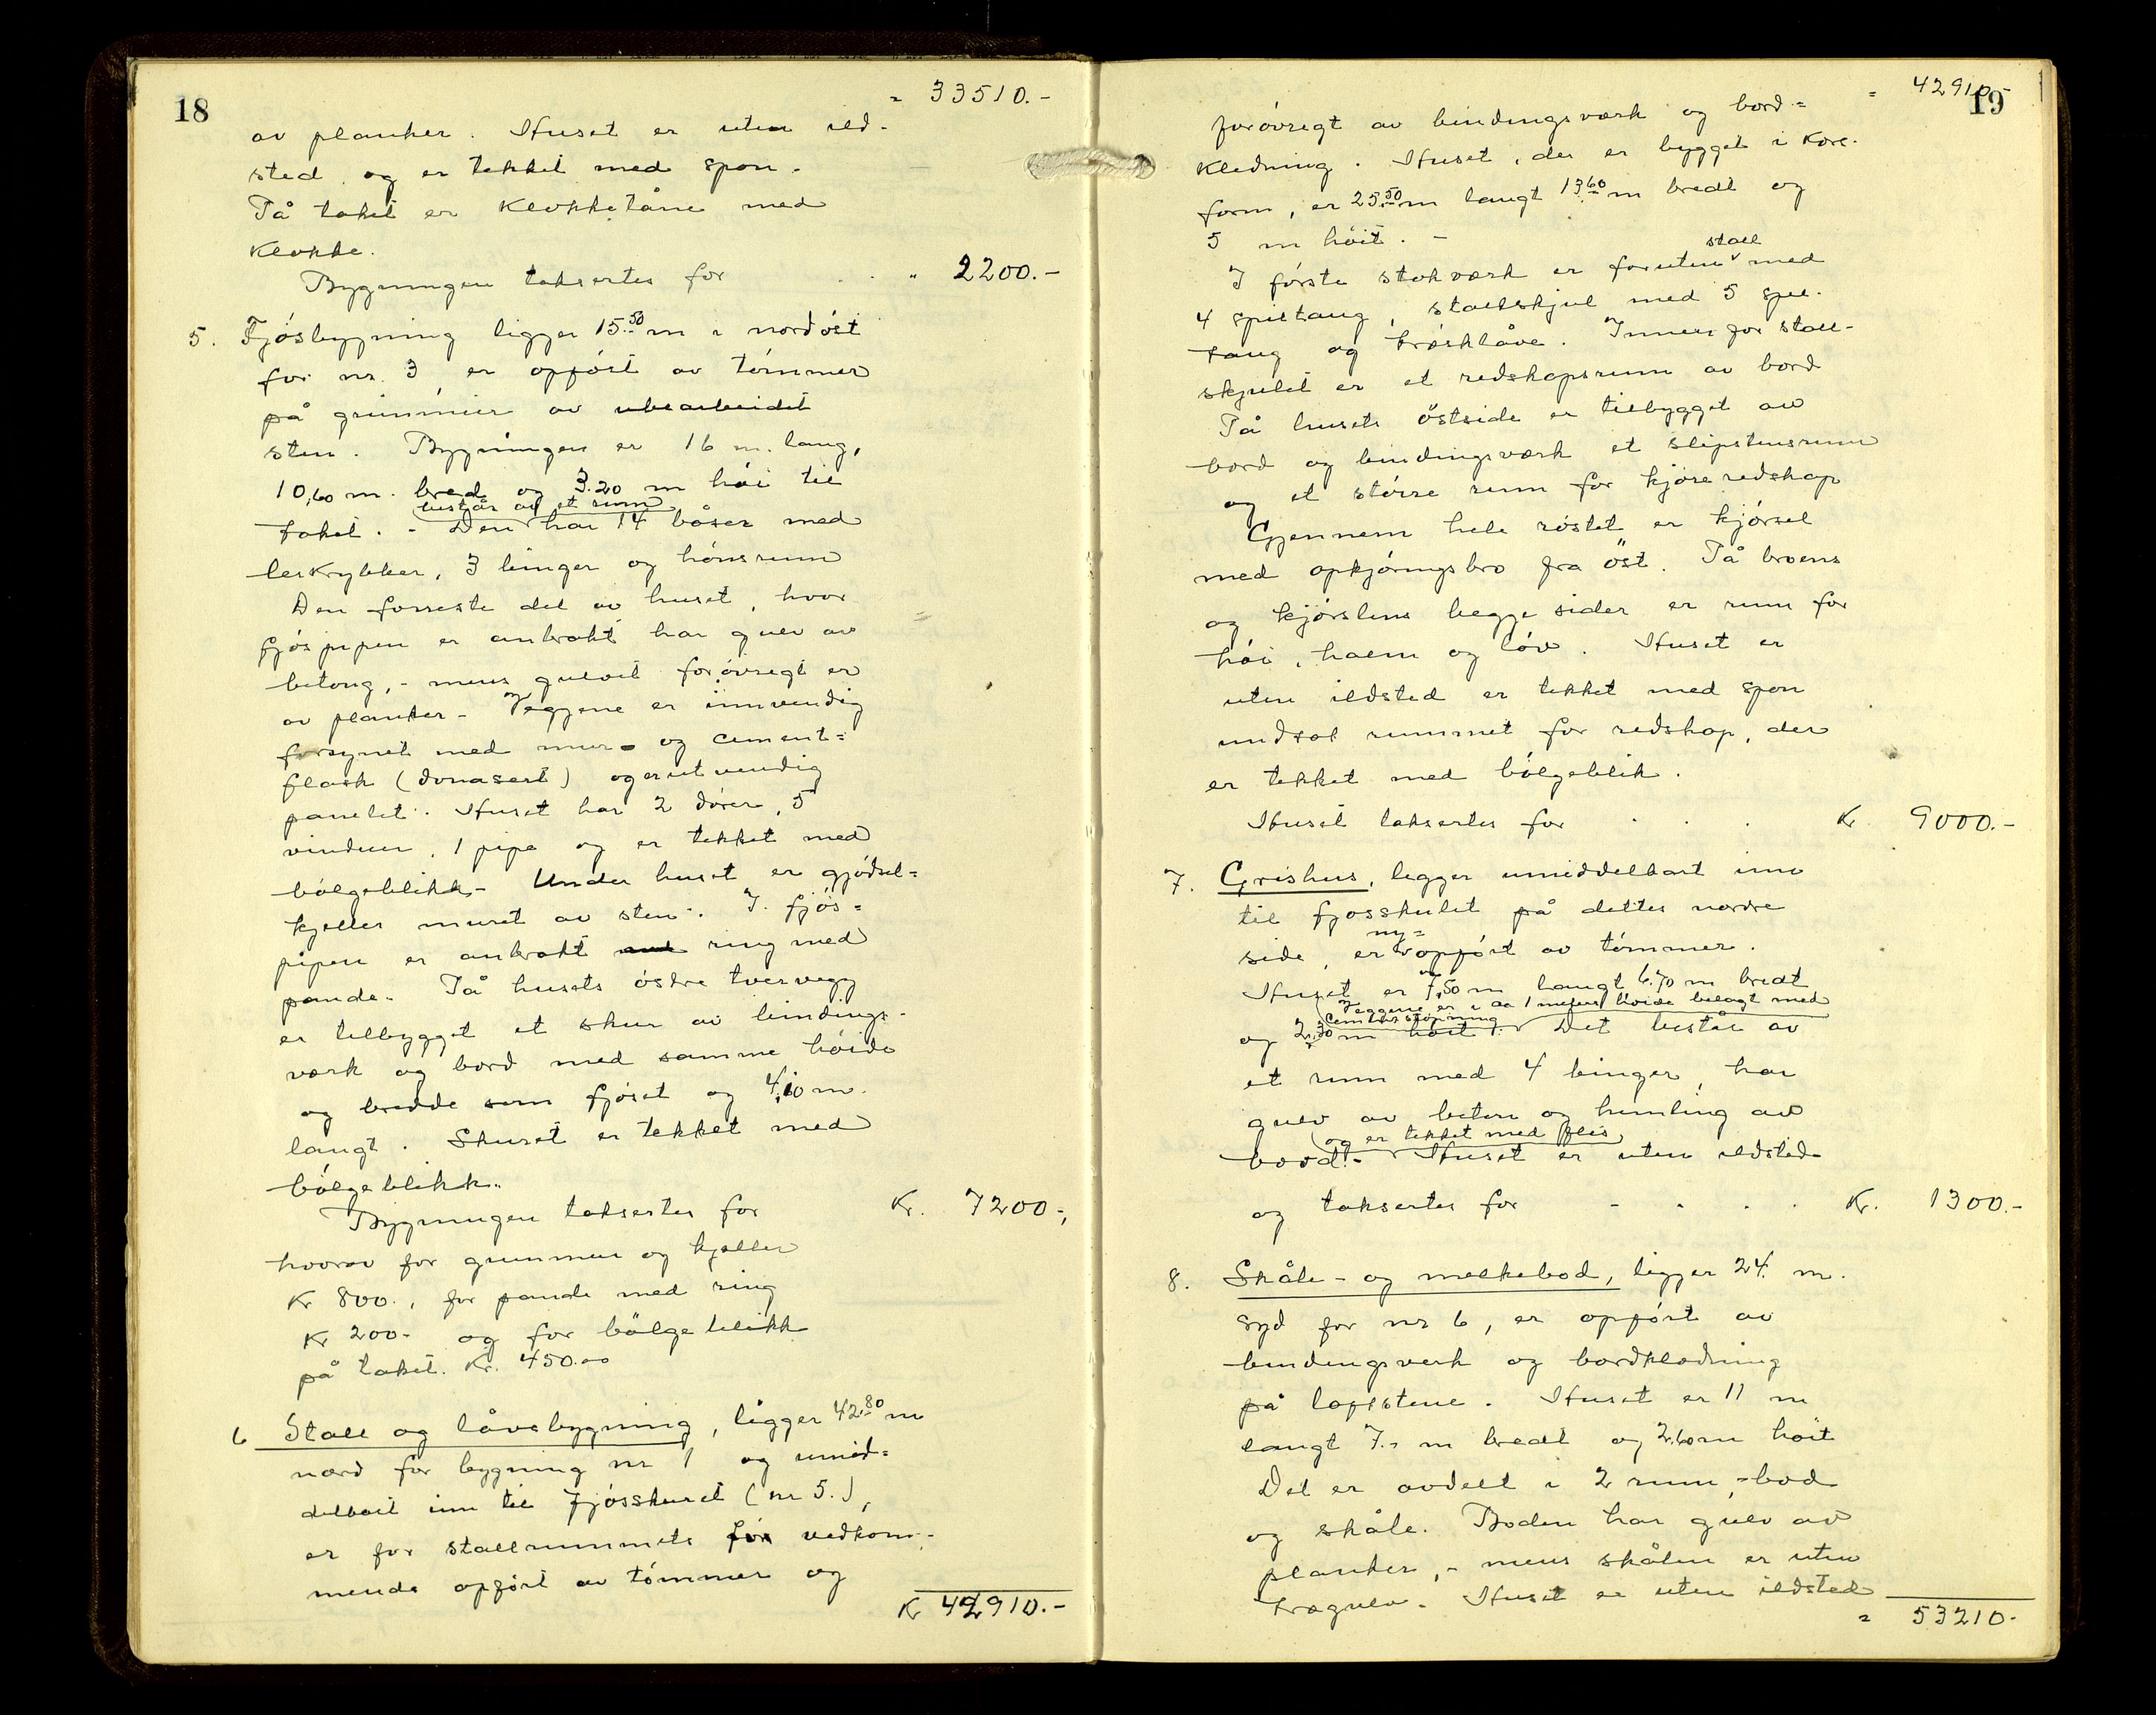 18
= 33510.-
av planker. Huset er uten ild-
sted og er tekket med spon.
På taket er klokketårn med
klokke.
Bygningen takseres for . . " 2200.-
5. Fjösbygning ligger 15.50 m i nordöst
for nr. 3, er opfört av tömmer
på grunnmur av ubearbeidet
sten. Bygningen er 16 m. lang,
10,60 m. bred og 3.20 m höi til
består av et rum
taket. - Den har 14 båser med
lerkrybber, 3 binger og hönsrum
Den forreste del av huset, hvor
fjöspipen er anbrakt har gulv av
betong, - mens gulvet forövrigt er
av planker - Veggene er innvendig
forsynet med mur- og cement=
plask (donasert) og er utvendig
panelet. Huset har 2 dörer, 5
vinduer, 1 pipe og er tekket med
bölgeblikk - Under huset er gjödsel=
kjeller muret av sten. I fjös=
pipen er anbrakt ring med
pande. På husets östre tvervegg
er tilbygget et skur av bindings-
verk og bord med samme höide
og bredde som fjöset og 4,10 m.
langt. Skuret er tekket med
bölgeblikk.
Bygningen takseres for Kr. 7200-,
hvorav for grunnmur og kjeller
Kr 800., for pande med ring
Kr 200- og for bölgeblikk
på taket. Kr. 450.00
6 Stall og låvebygning, ligger 42.80 m
nord for bygning nr 1 og umid=
delbart inn til fjösskuret (nr 5.),
er for stallrummets for vedkom-
mende opfört av tömmer og
Kr 42910.-
19
= 42910.-
forövrigt av bindingsverk og bord=
kledning. Huset, der er bygget i kors-
form, er 25.50 m langt 13.60 m bredt og
5 m höit. -
stall
I förste stokverk er foruten med
4 spiltaug, stallskjul med 5 spil-
taug og tresklåve. Innen for stall-
skjulet er et redskapsrum av bord
På husets östside er tilbygget av
bord og bindingsverk et slipstensrum
og et större rum for kjöreredskap
Gjennem hele röstet er kjörsel
med opkjöringsbro fra öst. På broens
og kjörslens begge sider er rum for
höi, halm og löv. Huset er
uten ildsted er tekket med spon
undtat rummet for redskap, der
er tekket med bölgeblik.
Huset takseres for . . . Kr 9000.-
7. Grishus, ligger umiddelbart inn
til fjosskulet på dettes nordre
ny=
side, er opfört av tömmer.
Huset er 7,50 m langt 6.70 m bredt
Veggene er i ca 1 meters höide belagt med
cementstöpning
og 2,30 m höit. Det består av
et rum med 4 binger, har
gulv av beton og himling av
og er tekket med flis
bord. - Huset er uten ildsted
og takseres for - . . . Kr. 1300.-
8. Skåle- og melkebod, ligger 24. m.
syd for nr 6, er opfört av
bindingsverk og bordkledning
på löpstene. Huset er 11 m
langt 7.- m bredt og 2,60 m höit
Det er avdelt i 2 rum, - bod
og skåle. Boden har gulv av
planker, - mens skålen er uten
tregulv. Huset er uten ildsted
= 53210-